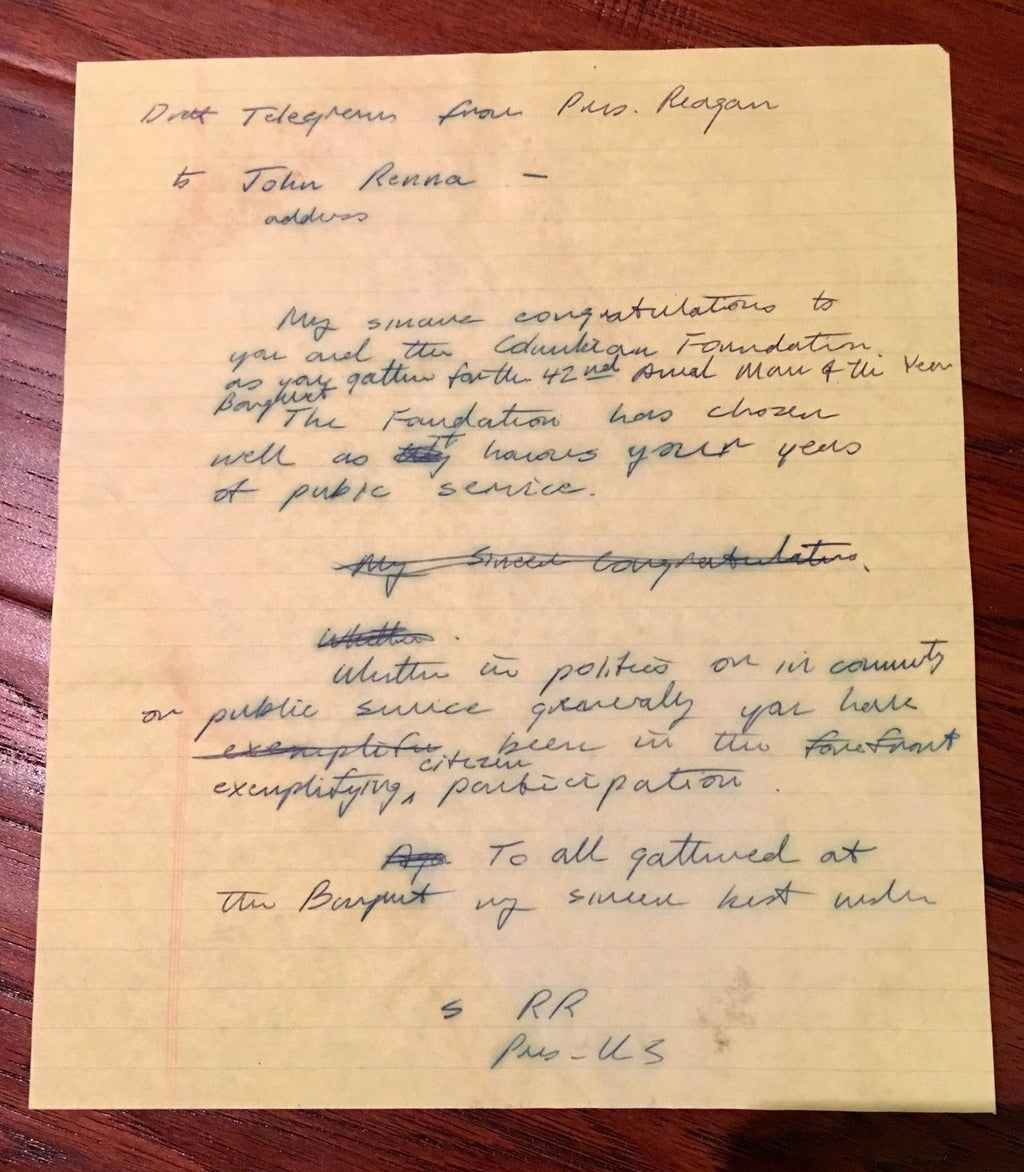 Draft Telegram from Pres. Reagan
to John Renna —
address
My sincere congratulations to
you and the Columbian Foundation
as you gather for the 42nd Annual Man of the Year
Banquet
The Foundation has chosen
well as it honors your years
of public service.
My Sincere Congratulations.
Whether.
Whether in politics or in community
or public service generally you have
exemplified been in the forefront
citizen
exemplifying ^ participation.
Aga To all gathered at
the Banquet my sincere best wishes
s RR
Pres - US